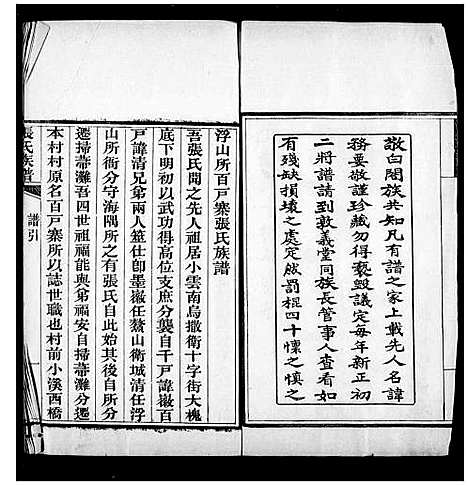 敬白閤族共知凡有譜之家上載先人名諱
務要敬謹珍藏勿得褻毀議定每年新正初
二將譜請到敦義堂同族長管事人查看如
有殘缺損壞之處定然罰棍四十懍之慎之
浮山所百戶寨張氏族譜
吾張氏聞之先人祖居小雲南烏撒衛十字街大槐
底下明初以武功得高位支庶分襲自千戶諱徽百
戶諱清兄弟兩人筮仕卽墨徽任鰲山衛城清任浮
山所衙分守海隅所之有張氏自此始其後自所分
遷掃帚灘吾四世祖福能與弟福安自掃帚灘分遷
本村村原名百戶寨所以誌世職也村前小溪西橋
張氏族譜
譜引